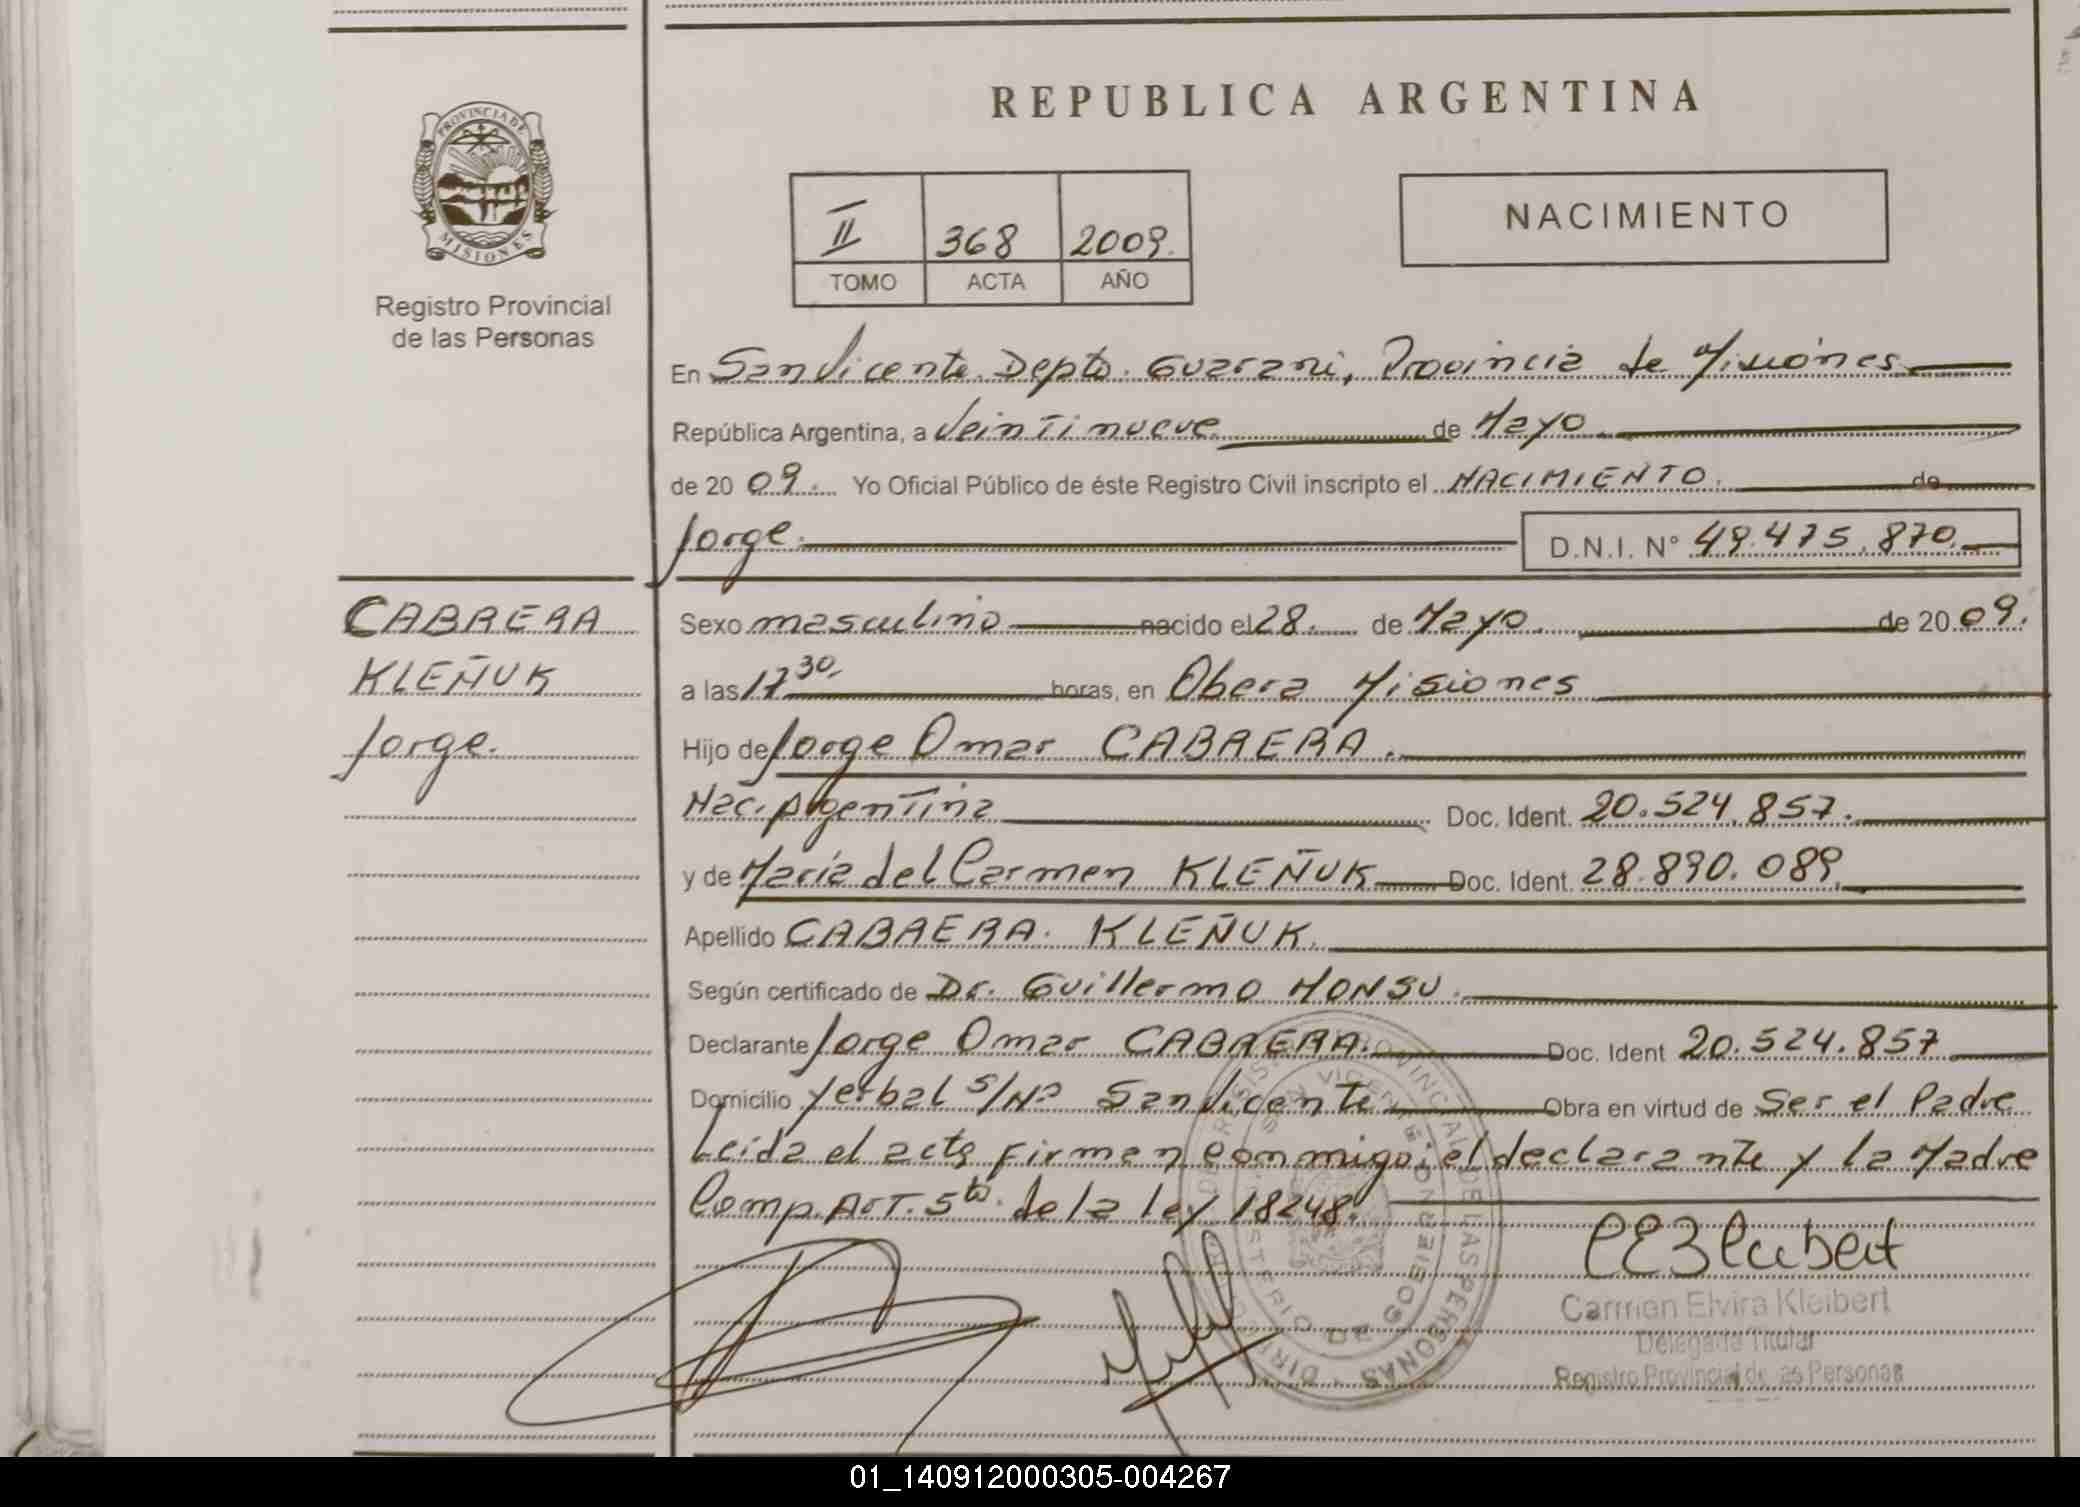 REPUBLICA ARGENTINA
PROVINCIA DE
MISIONES
Registro Provincial
de las Personas
II 368 2009.
TOMO ACTA AÑO
NACIMIENTO
En San Vicente Depto. Guarani, Provincia de Misiones
República Argentina, a Veintinueve de Mayo.
de 20 09. Yo Oficial Público de éste Registro Civil inscripto el NACIMIENTO. de
Jorge. D.N.I. N° 49.475.870.
CABRERA
KLEÑUK
Jorge.
Sexo masculino nacido el 28. de Mayo. de 20 09.
a las 17 30. horas, en Obera Misiones
Hijo de Jorge Omar CABRERA.
Nac. Argentina Doc. Ident. 20.524.857.
y de María del Carmen KLEÑUK Doc. Ident. 28.890.089.
Apellido CABRERA. KLEÑUK.
Según certificado de Dr. Guillermo MONSU.
Declarante Jorge Omar CABRERA. Doc. Ident 20.524.857
Domicilio Yerbal S/Nº San Vicente Obra en virtud de Ser el Padre
Leida el acta firman conmigo, el declarante y la Madre
Comp. Art. 5to. de la ley 18248.
Carmen Elvira Kleibert
Delegada Titular
Registro Provincial de las Personas
01_140912000305-004267